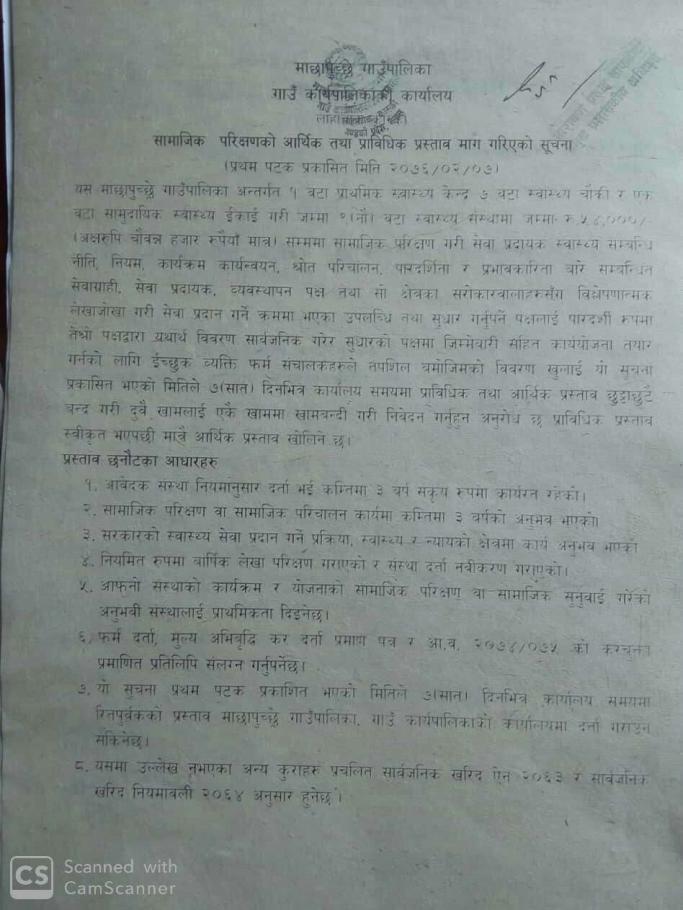 माछापुच्छ्रे गाउँपालिका
गाउँ कार्यपालिकाको कार्यालय
सामाजिक परिक्षणको आर्थिक तथा प्राविधिक प्रस्ताव माग गरिएको सूचना
(प्रथम पटक प्रकासित मिति २०७६/०२/०७)
यस माछापुच्छ्रे गाउँपालिका अन्तर्गत १ वटा प्राथमिक स्वास्थ्य केन्द्र ७ वटा स्वास्थ्य चौकी र एक
वटा सामुदायिक स्वास्थ्य ईकाई गरी जम्मा ९(नौ) वटा स्वास्थ्य संस्थामा जम्मा रु.५४,०००/-
(अक्षरुपि चौवन्न हजार रुपैयाँ मात्र) सम्ममा सामाजिक परिक्षण गरी सेवा प्रदायक स्वास्थ्य सम्बन्धि
नीति, नियम, कार्यक्रम कार्यन्वयन, श्रोत परिचालन, पारदर्शिता र प्रभावकारिता बारे सम्बन्धित
सेवाग्राही, सेवा प्रदायक, व्यवस्थापन पक्ष तथा सो क्षेत्रका सरोकारवालाहरुसँग विश्लेषणात्मक
लेखाजोखा गरी सेवा प्रदान गर्ने क्रममा भएका उपलब्धि तथा सुधार गर्नुपर्ने पक्षलाई पारदर्शी रुपमा
तेश्रो पक्षद्वारा यथार्थ विवरण सार्वजनिक गरेर सुधारको पक्षमा जिम्मेवारी सहित कार्ययोजना तयार
गर्नको लागि ईच्छुक व्यक्ति फर्म संचालकहरुले तपशिल बमोजिमको विवरण खुलाई यो सूचना
प्रकासित भएको मितिले ७(सात) दिनभित्र कार्यालय समयमा प्राविधिक तथा आर्थिक प्रस्ताव छुट्टाछुट्टै
बन्द गरी दुवै खामलाई एकै खाममा खामबन्दी गरी निवेदन गर्नुहुन अनुरोध छ प्राविधिक प्रस्ताव
स्वीकृत भएपछी मात्रै आर्थिक प्रस्ताव खोलिने छ।
प्रस्ताव छनौटका आधारहरु
१. आवेदक संस्था नियमानुसार दर्ता भई कम्तिमा ३ वर्ष सकृय रुपमा कार्यरत रहेको।
२. सामाजिक परिक्षण वा सामाजिक परिचालन कार्यमा कम्तिमा ३ वर्षको अनुभव भएको।
३. सरकारको स्वास्थ्य सेवा प्रदान गर्ने प्रक्रिया, स्वास्थ्य र न्यायको क्षेत्रमा कार्य अनुभव भएको
४. नियमित रुपमा वार्षिक लेखा परिक्षण गराएको र संस्था दर्ता नवीकरण गराएको।
५. आफ्नो संस्थाको कार्यक्रम र योजनाको सामाजिक परिक्षण वा सामाजिक सुनुवाई गरेको
अनुभवी संस्थालाई प्राथमिकता दिइनेछ।
६. फर्म दर्ता, मुल्य अभिवृद्धि कर दर्ता प्रमाण पत्र र आ.व. २०७४/०७५ को करचुक्ता
प्रमाणित प्रतिलिपि संलग्न गर्नुपर्नेछ।
७. यो सुचना प्रथम पटक प्रकाशित भएको मितिले ७(सात) दिनभित्र कार्यालय समयमा
रितपुर्वकको प्रस्ताव माछापुच्छ्रे गाउँपालिका, गाउँ कार्यपालिकाको कार्यालयमा दर्ता गराउन
सकिनेछ।
८. यसमा उल्लेख नभएका अन्य कुराहरु प्रचलित सार्वजनिक खरिद ऐन २०६३ र सार्वजनिक
खरिद नियमावली २०६४ अनुसार हुनेछ।
CS Scanned with
CamScanner